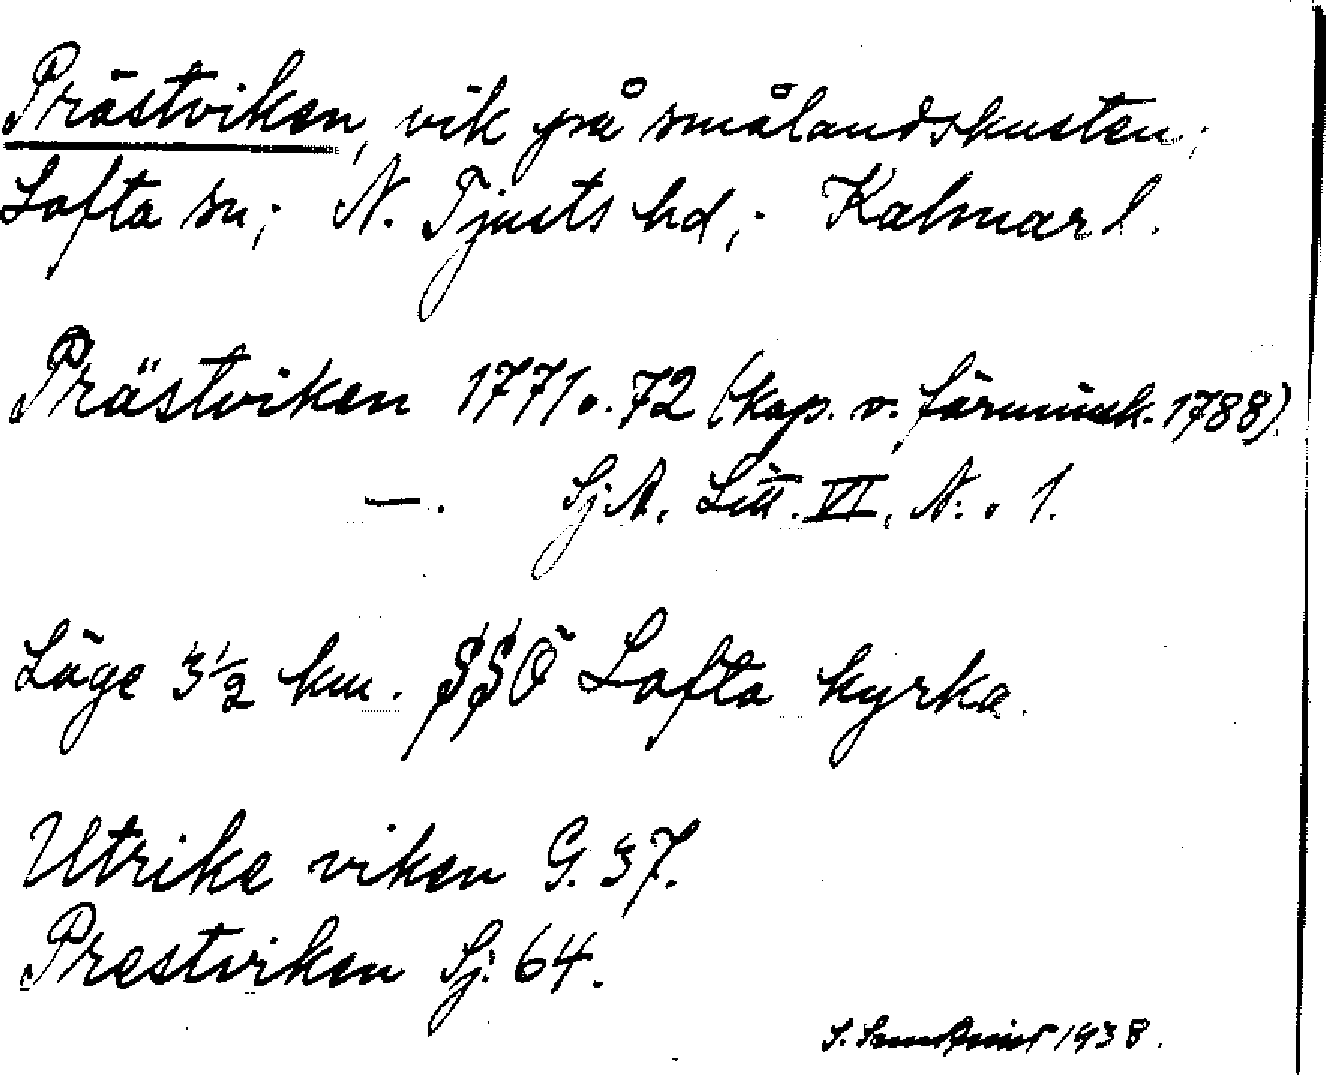 Prästviken, vik på smålandskusten;
Lofta sn; N. Tjusts hd; Kalmar l.
Prästviken 1771 o. 72 (kop. o. förminsk. 1788)
—. Sj.A. Litt. VI, N:o 1.
Läge 3½ km. SSÖ Lofta kyrka.
Utrike viken G. 37.
Prestviken Sj. 64.
S. 1938.